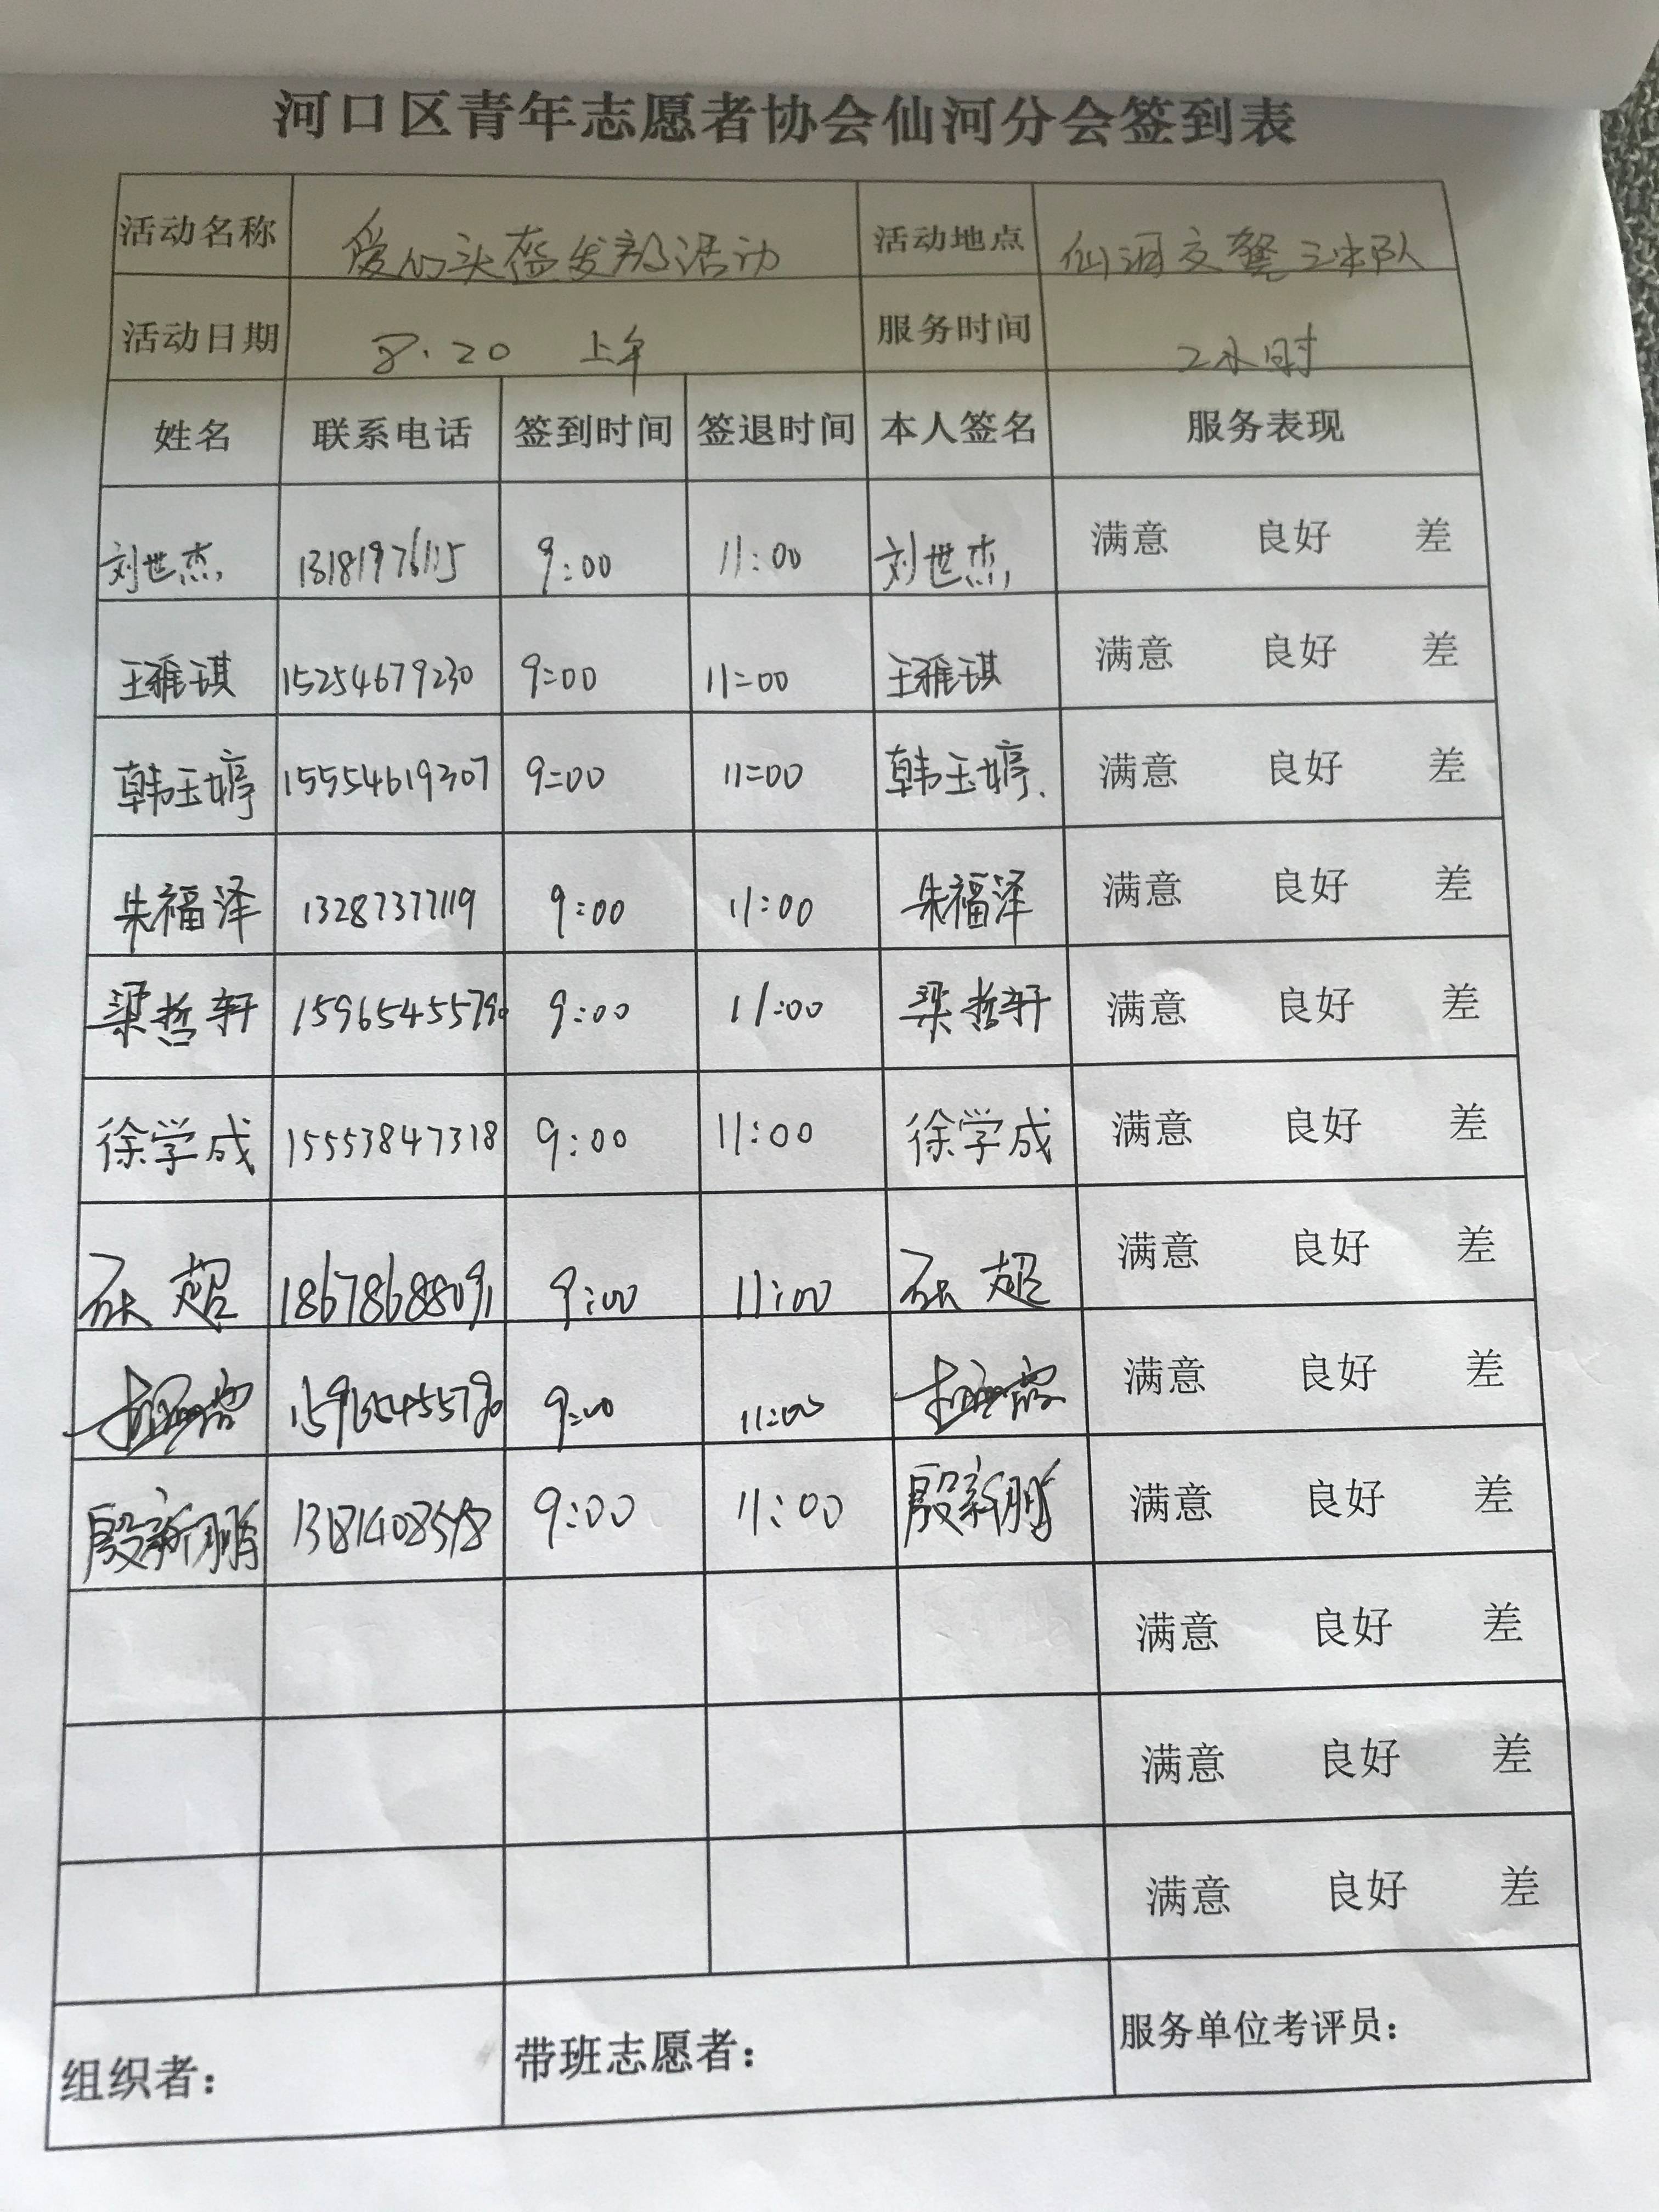 河口区青年志愿者协会仙河分会签到表
活动名称 爱心头盔发放活动 活动地点 仙河交警三中队
活动日期 8.20 上午 服务时间 2小时
姓名 联系电话 签到时间 签退时间 本人签名 服务表现
刘世杰 13181976115 9:00 11:00 刘世杰 满意 良好 差
王雅琪 15254679230 9:00 11:00 王雅琪 满意 良好 差
韩玉婷 15554619307 9:00 11:00 韩玉婷. 满意 良好 差
朱福泽 13287377119 9:00 11:00 朱福泽 满意 良好 差
梁哲轩 15965455790 9:00 11:00 梁哲轩 满意 良好 差
徐学成 15553847318 9:00 11:00 徐学成 满意 良好 差
张超 18678688091 9:00 11:00 张超 满意 良好 差
15965455790 9:00 11:00 满意 良好 差
殷新鹏 9:00 11:00 殷新鹏 满意 良好 差
满意 良好 差
满意 良好 差
满意 良好 差
组织者： 带班志愿者： 服务单位考评员：